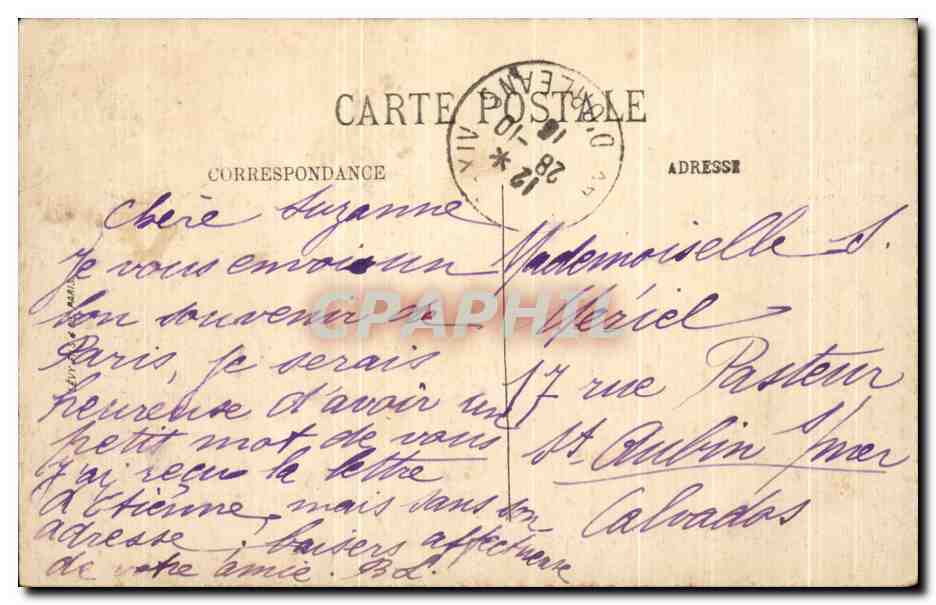 CARTE POSTALE
CORRESPONDANCE
ADRESSE
D'ORLEANS
12
28 -10
18
XIV
Chère Suzanne
Je vous envoie un
bon souvenir de
Paris, je serais
heureuse d'avoir un
petit mot de vous
J'ai reçu la lettre
d'Etienne, mais sans son
adresse, baisers affectueuse
de votre amie. B L.
Mademoiselle S.
Mériel
17 rue Pasteur
St. Aubin s/mer
Calvados
CPAPHIL
PARIS